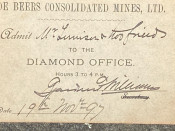 DE BEERS CONSOLIDATED MINES, LTD.
Admit Mr & friends
TO THE
DIAMOND OFFICE.
HOURS 3 TO 4 P.M.
Gardner F. Williams
Date 19th Nov. 97